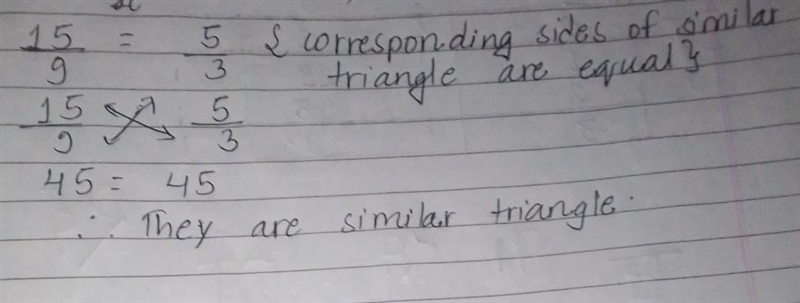 15/9 = 5/3 { corresponding sides of similar
triangle are equal}
15/9 5/3
45 = 45
∴ They are similar triangle.